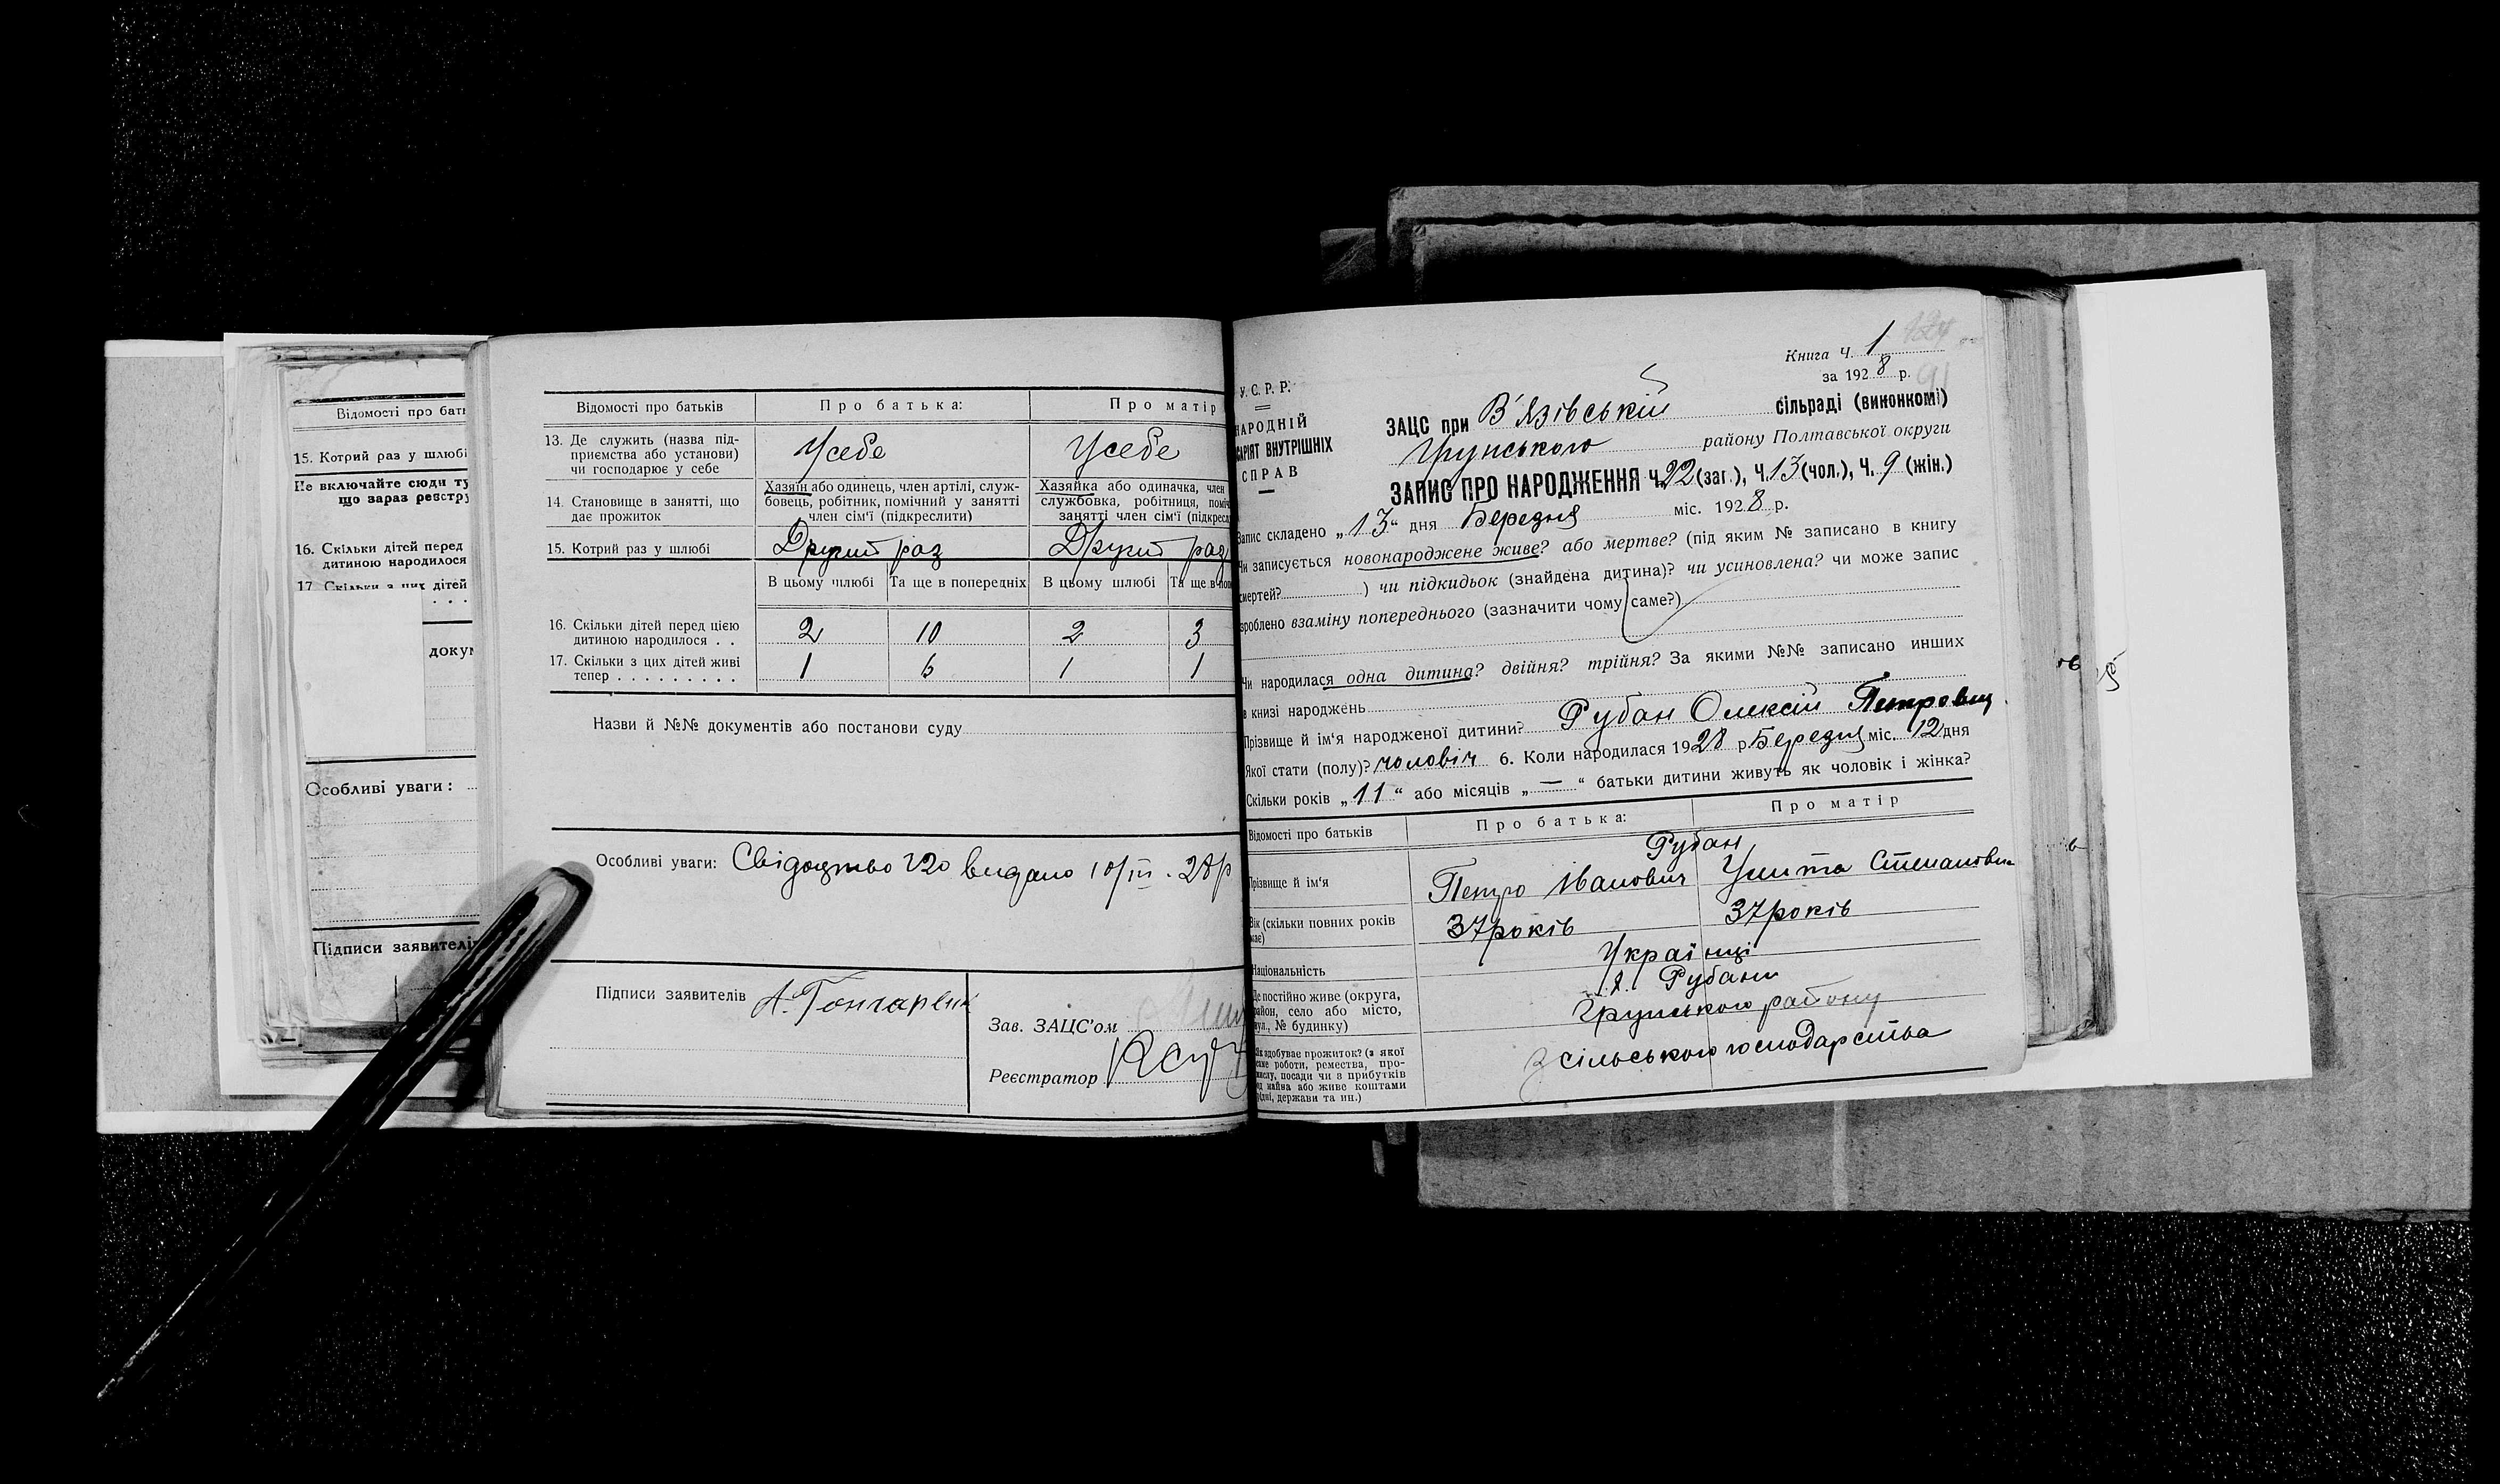 Відомості про бать
15. Котрий раз у шлюбі
Не включайте сюди ту
що зараз реєстру
16. Скільки дітей перед
дитиною народилося
17. Скільки з цих дітей
докум
Особливі уваги:
Підписи заявителі
Відомості про батьків
Про батька:
Про матір
13. Де служить (назва під-
приємства або установи)
чи господарює у себе
Усебе
Усебе
14. Становище в занятті, що
дає прожиток
Хазяїн або одинець, член артілі, служ-
бовець, робітник, помічний у занятті
член сім'ї (підкреслити)
Хазяйка або одиначка, член
службовка, робітниця, поміч
занятті член сім'ї (підкресл
15. Котрий раз у шлюбі
Другий раз
Другий раз
В цьому шлюбі
Та ще в попередніх
В цьому шлюбі
Та ще в поп
16. Скільки дітей перед цією
дитиною народилося . .
2
10
2
3
17. Скільки з цих дітей живі
тепер . . . . . . . . .
1
6
1
1
Назви й №№ документів або постанови суду
Особливі уваги: Свідоцтво 220 видано 10/III - 28 р
Підписи заявителів А. Гончаренк
Зав. ЗАЦС'ом
Реєстратор
Книга Ч. 1
за 1928 р.
91
У. С. Р. Р.
НАРОДНІЙ
САРІЯТ ВНУТРІШНІХ
СПРАВ
ЗАЦС при В'язівській сільраді (виконкомі)
Грунського району Полтавської округи
ЗАПИС ПРО НАРОДЖЕННЯ Ч. 22 (заг.), Ч. 13 (чол.), Ч. 9 (жін.)
Запис складено „13“ дня Березня міс. 1928 р.
Чи записується новонароджене живе? або мертве? (під яким № записано в книгу
смертей? ) чи підкидьок (знайдена дитина)? чи усиновлена? чи може запис
зроблено взаміну попереднього (зазначити чому саме?)
Чи народилася одна дитина? двійня? трійня? За якими №№ записано инших
в книзі народжень
Прізвище й ім'я народженої дитини? Рубан Олексій Петрович
Якої стати (полу)? чоловіч 6. Коли народилася 1928 р. Березня міс. 12 дня
Скільки років „11“ або місяців „—“ батьки дитини живуть як чоловік і жінка?
Відомості про батьків
Про батька:
Про матір
Рубан
Прізвище й ім'я
Петро Іванович
Улита Степановна
Вік (скільки повних років
має)
37 років
37 років
Національність
Українці
Де постійно живе (округа,
район, село або місто,
вул., № будинку)
х. Рубани
Грунського району
Як здобуває прожиток? (з якої
саме роботи, ремества, про-
мислу, посади чи з прибутків
од майна або живе коштами
рідні, держави та ин.)
З сільського господарства